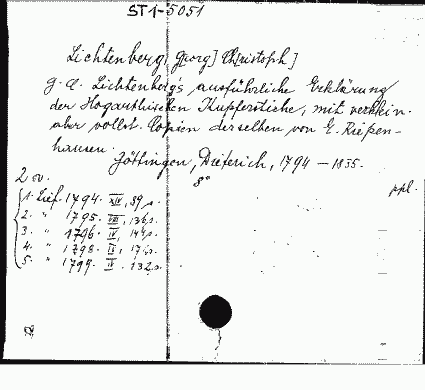 ST 1-5051
Lichtenberg, G[eorg] Christoph]
G. C. Lichtenberg's ausführliche Erklärung
der Hogarthischen Kupferstiche, mit verklein.
aber vollst. Copien derselben von E. Riepen-
hausen.
Göttingen, Dieterich, 1794 — 1835.
8°
ppl.
2 ov.
1. Lief. 1794. XIV,
2. " 1795. 136 s.
3. " 1796. IV, 144 s.
4. " 1798.
5. " 1799. 132 s.